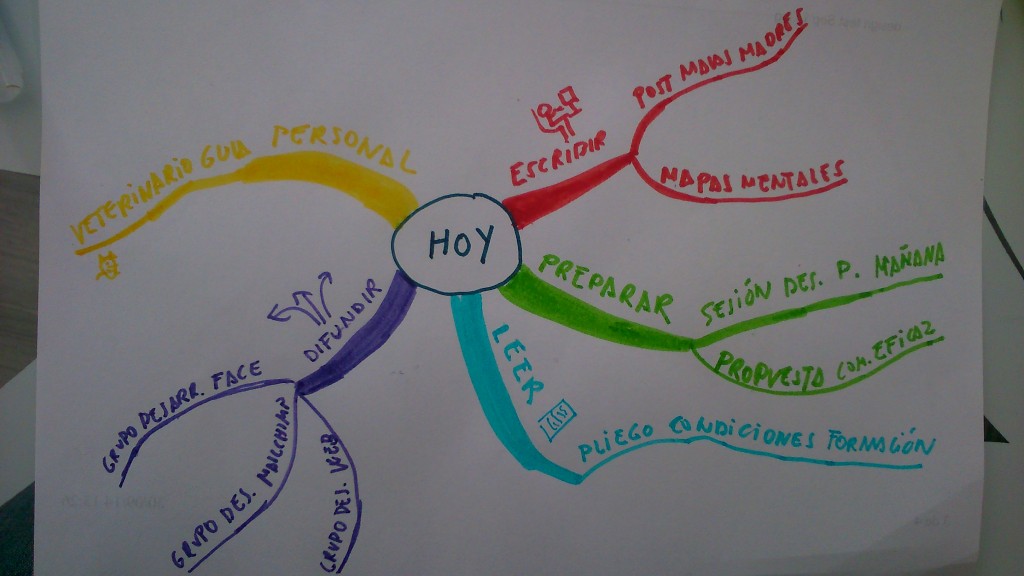 HOY
ESCRIBIR
POST MAPAS MADRES
MAPAS MENTALES
PREPARAR
SESIÓN DES. P. MAÑANA
PROPUESTA COM. EFICAZ
LEER
PLIEGO CONDICIONES FORMACIÓN
DIFUNDIR
GRUPO DESARR. FACE
GRUPO DES. MAILCHIMP
GRUPO DES. WEB
PERSONAL
VETERINARIO GUIA